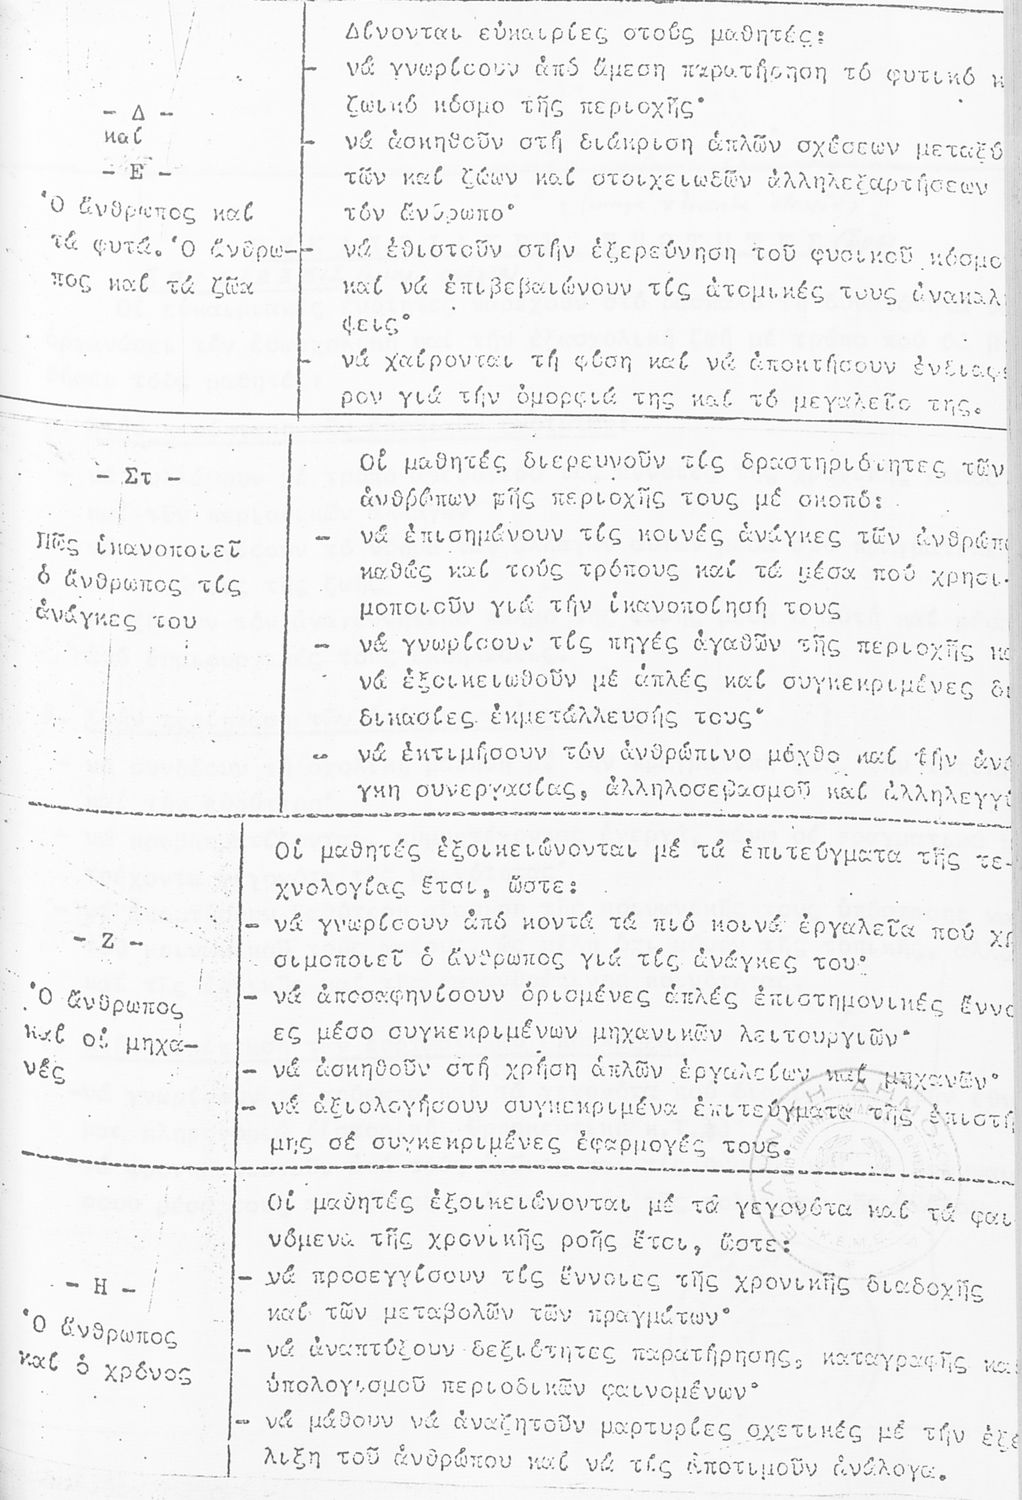 - Δ -
καί
- Ε -
Ὁ ἄνθρωπος καί
τά φυτά. Ὁ ἄνθρω-
πος καί τά ζῶα
Δίνονται εὐκαιρίες στούς μαθητές:
- νά γνωρίσουν ἀπό ἄμεση παρατήρηση τό φυτικό κ
ζωικό κόσμο τῆς περιοχῆς·
- νά ἀσκηθοῦν στή διάκριση ἁπλῶν σχέσεων μεταξύ
τῶν καί ζώων καί στοιχειωδῶν ἀλληλεξαρτήσεων
τόν ἄνθρωπο·
- νά ἐθιστοῦν στήν ἐξερεύνηση τοῦ φυσικοῦ κόσμο
καί νά ἐπιβεβαιώνουν τίς ἀτομικές τους ἀνακαλ
ψεις·
- νά χαίρονται τή φύση καί νά ἀποκτήσουν ἐνδιαφ
ρον γιά τήν ὀμορφιά της καί τό μεγαλεῖο της.
- Στ -
Πῶς ἱκανοποιεῖ
ὁ ἄνθρωπος τίς
ἀνάγκες του
Οἱ μαθητές διερευνοῦν τίς δραστηριότητες τῶν
ἀνθρώπων τῆς περιοχῆς τους μέ σκοπό:
- νά ἐπισημάνουν τίς κοινές ἀνάγκες τῶν ἀνθρώπ
καθώς καί τούς τρόπους καί τά μέσα πού χρησι-
μοποιοῦν γιά τήν ἱκανοποίησή τους
- νά γνωρίσουν τίς πηγές ἀγαθῶν τῆς περιοχῆς κα
νά ἐξοικειωθοῦν μέ ἁπλές καί συγκεκριμένες δι
δικασίες ἐκμετάλλευσής τους·
- νά ἐκτιμήσουν τόν ἀνθρώπινο μόχθο καί τήν ἀνά
γκη συνεργασίας, ἀλληλοσεβασμοῦ καί ἀλληλεγγύ
- Ζ -
Ὁ ἄνθρωπος
καί οἱ μηχα-
νές
Οἱ μαθητές ἐξοικειώνονται μέ τά ἐπιτεύγματα τῆς τε-
χνολογίας ἔτσι, ὥστε:
- νά γνωρίσουν ἀπό κοντά τά πιό κοινά ἐργαλεῖα πού χρ
σιμοποιεῖ ὁ ἄνθρωπος γιά τίς ἀνάγκες του·
- νά ἀποσαφηνίσουν ὁρισμένες ἁπλές ἐπιστημονικές ἔννο
ες μέσο συγκεκριμένων μηχανικῶν λειτουργιῶν·
- νά ἀσκηθοῦν στή χρήση ἁπλῶν ἐργαλείων καί μηχανῶν·
- νά ἀξιολογήσουν συγκεκριμένα ἐπιτεύγματα τῆς ἐπιστή
μης σέ συγκεκριμένες ἐφαρμογές τους.
- Η -
Ὁ ἄνθρωπος
καί ὁ χρόνος
Οἱ μαθητές ἐξοικειώνονται μέ τά γεγονότα καί τά φαι
νόμενα τῆς χρονικῆς ροῆς ἔτσι, ὥστε:
- νά προσεγγίσουν τίς ἔννοιες τῆς χρονικῆς διαδοχῆς
καί τῶν μεταβολῶν τῶν πραγμάτων·
- νά ἀναπτύξουν δεξιότητες παρατήρησης, καταγραφῆς κα
ὑπολογισμοῦ περιοδικῶν φαινομένων·
- νά μάθουν νά ἀναζητοῦν μαρτυρίες σχετικές μέ τήν ἐξέ
λιξη τοῦ ἀνθρώπου καί νά τίς ἀποτιμοῦν ἀνάλογα.